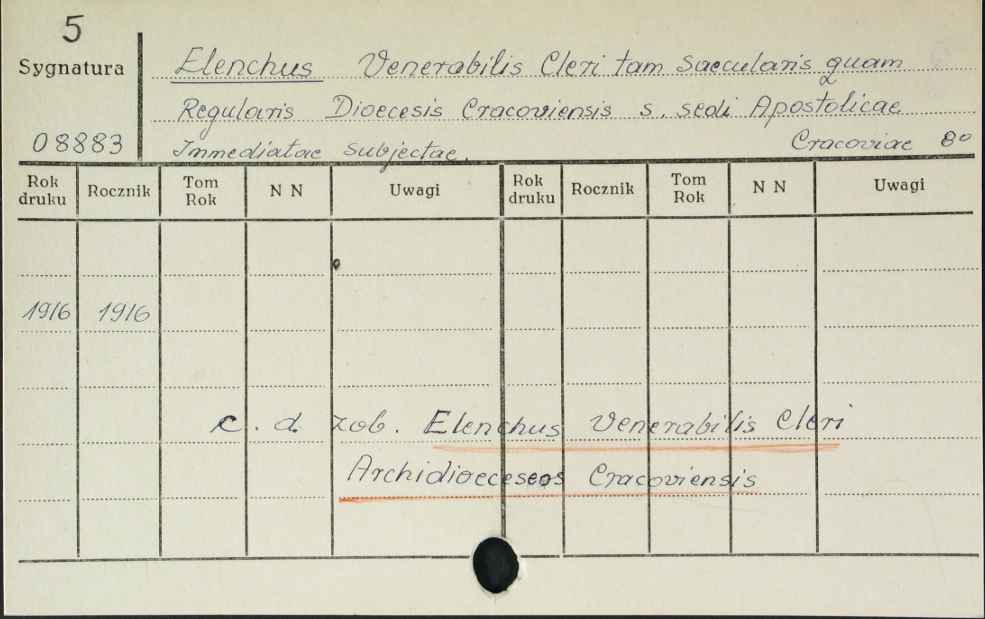 5
Sygnatura
Elenchus Venerabilis Cleri tam saecularis quam
Regularis Dioecesis Cracoviensis s. sedi Apostolicae
08883 Immediatae subjectae. Cracoviae 8o
Rok druku Rocznik Tom Rok N N Uwagi Rok druku Rocznik Tom Rok N N Uwagi
1916 1916
c. d. zob. Elenchus Venerabilis Cleri
Archidioeceseos Cracoviensis